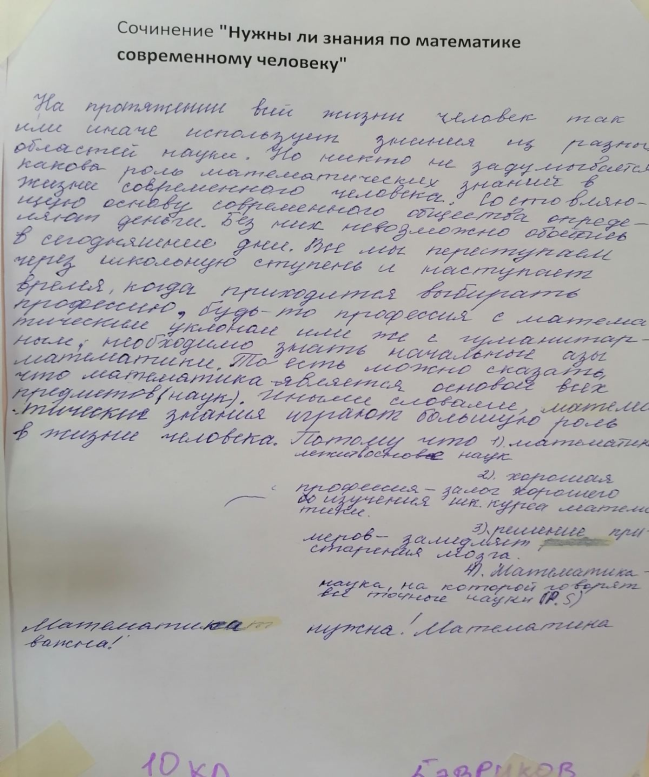 Сочинение "Нужны ли знания по математике
современному человеку"
На протяжении всй жизни человек так
или иначе использует знания из разны
областей науки. Но никто не задумывается
какова роль математических знаний в
жизни современного человека. Составляю-
щую основу современного общества опреде-
ляют деньги. Без них невозможно обойтись
в сегодняшние дни. Все мы переступаем
через школьную ступень и наступает
время, когда приходится выбирать
профессию, будь-то профессия с матема
тическим уклоном или же с гуманитар-
ным, необходимо знать начальные азы
математики. То есть можно сказать,
что математика является основой всех
предметов (наук). Иными словами, матема
тические знания играют большую роль
в жизни человека. Потому что 1) математик
лежит основе наук
2). хорошая
профессия - залог хорошего
изучения шк. курса матема
тики.
3). решение при
меров - замедляет
старения мозга.
4). Математика-
наука, на которой говорят
все точные науки (P.S)
Математика нужна! Математика
важна!
10 кл Бавриков